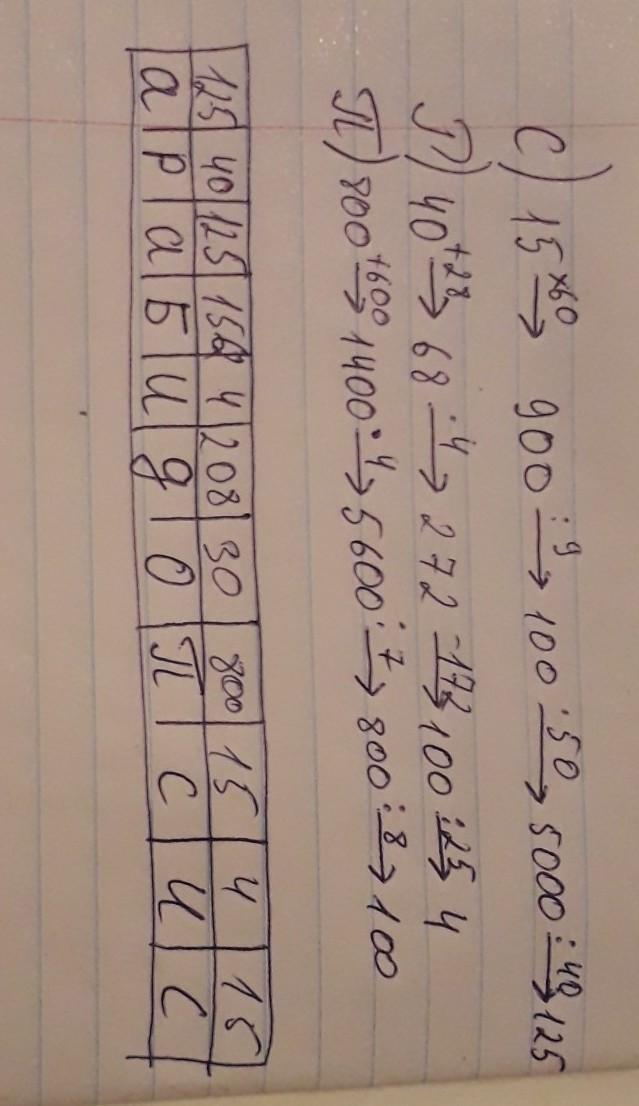 С) 15 ×60→ 900 :9→ 100 ·50→ 5000 :40→ 125
Р) 40 +28→ 68 ·4→ 272 -172→ 100 :25→ 4
П) 800 +600→ 1400 ·4→ 5600 :7→ 800 :8→ 100
125 40 125 4 208 30 800 15 4 15
а р а Б и д о П с и с